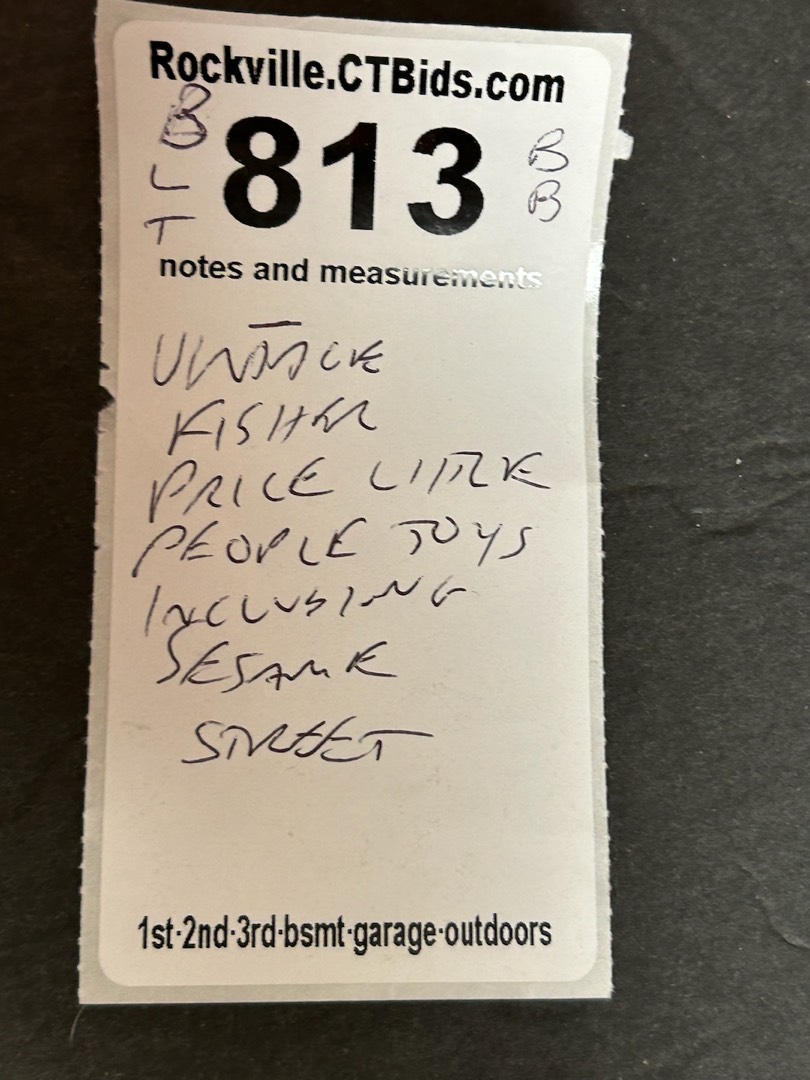 Rockville.CTBids.com
B
L
T
813
B
B
notes and measurements
FISHER
PRICE LITTLE
PEOPLE TOYS
INCLUDING
SESAME
STREET
1st·2nd·3rd·bsmt·garage·outdoors